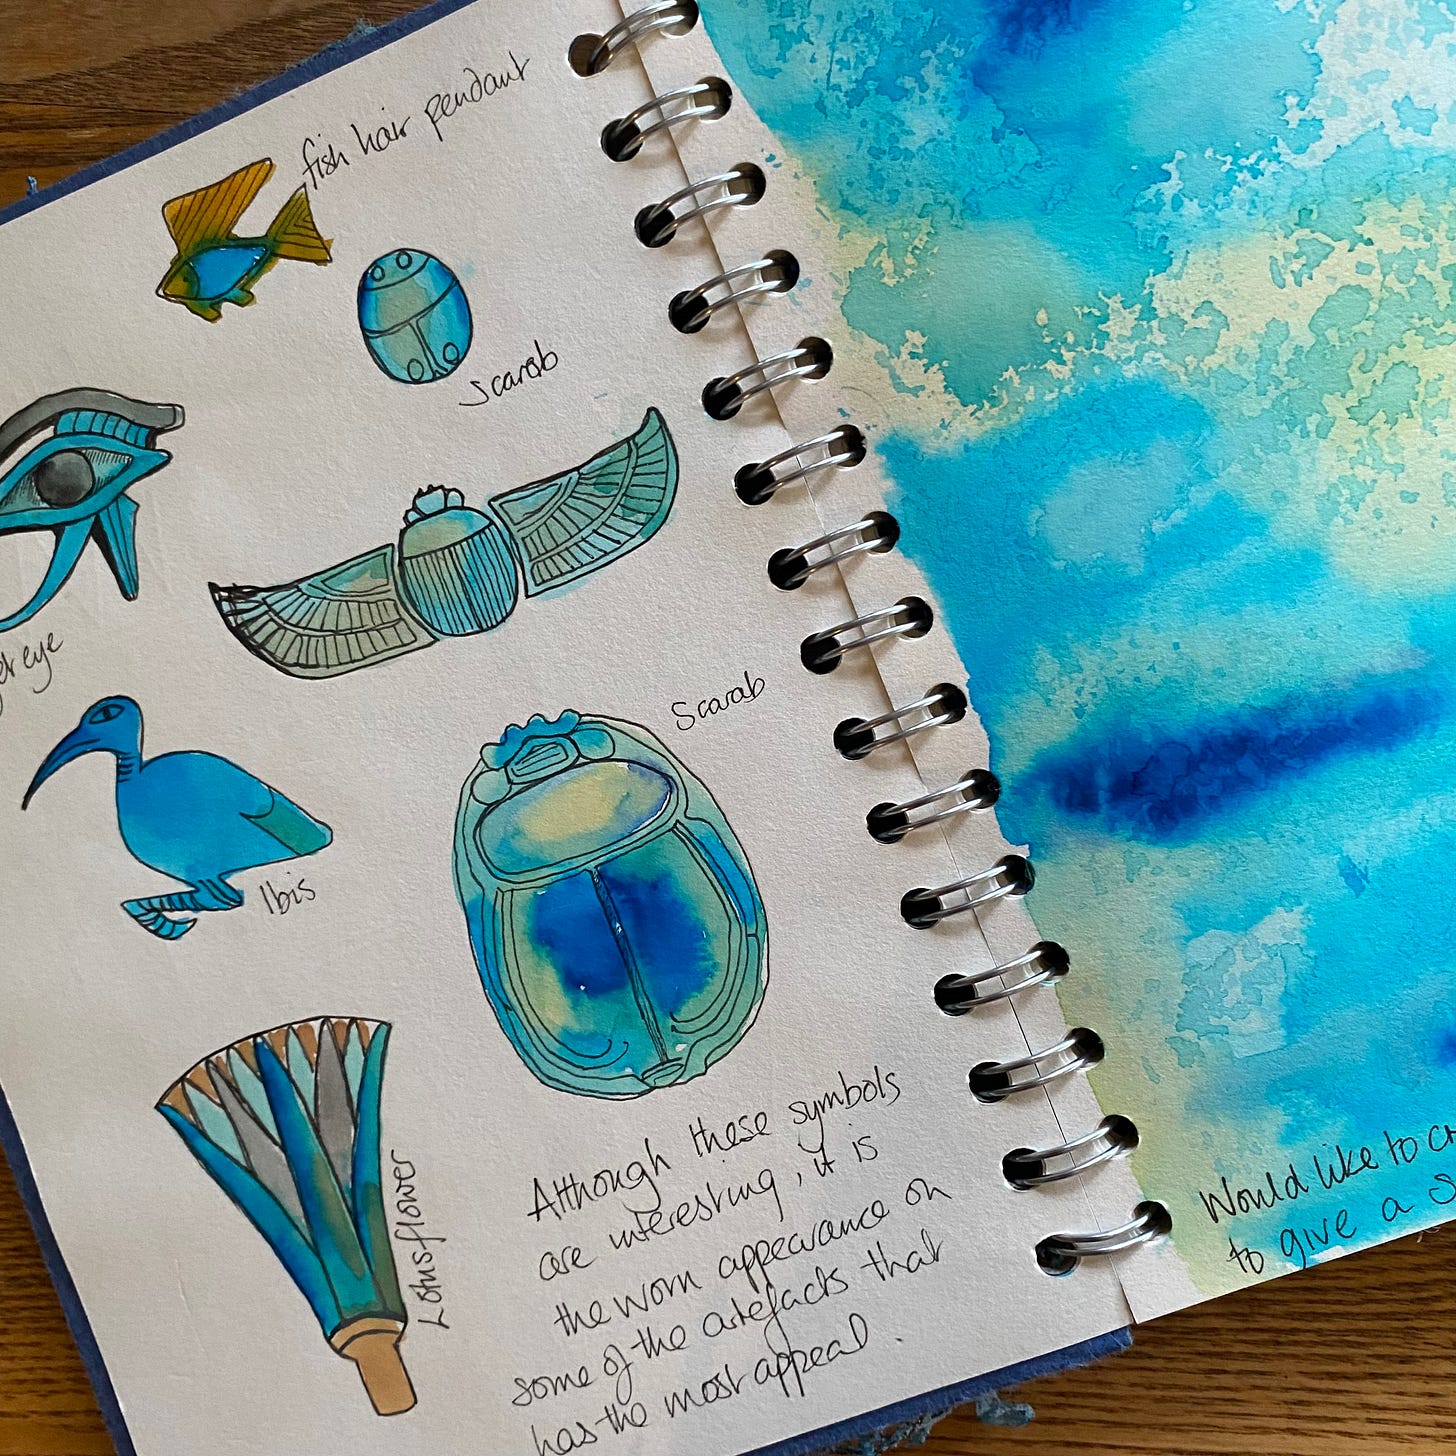 fish hair pendant
Scarab
eye
Scarab
Ibis
Lotus flower
Although these symbols
are interesting, it is
the worn appearance on
some of the artefacts that
has the most appeal.
Would like to
to give a